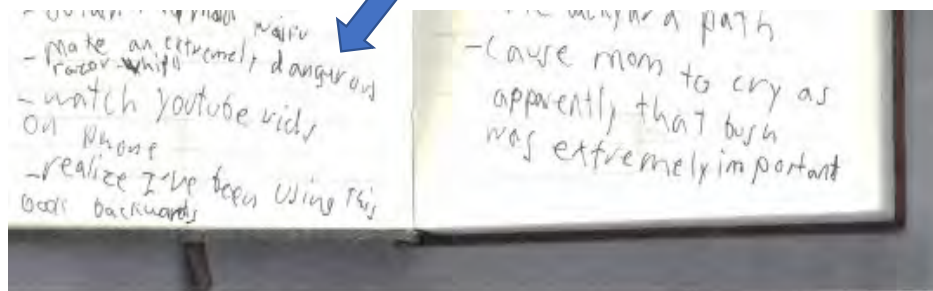 - make an extremely dangerous
razor whip
- watch youtube vids
on phone
- realize I've been using this
book backwards
backyard path
- Cause mom to cry as
apparently that bush
was extremely important